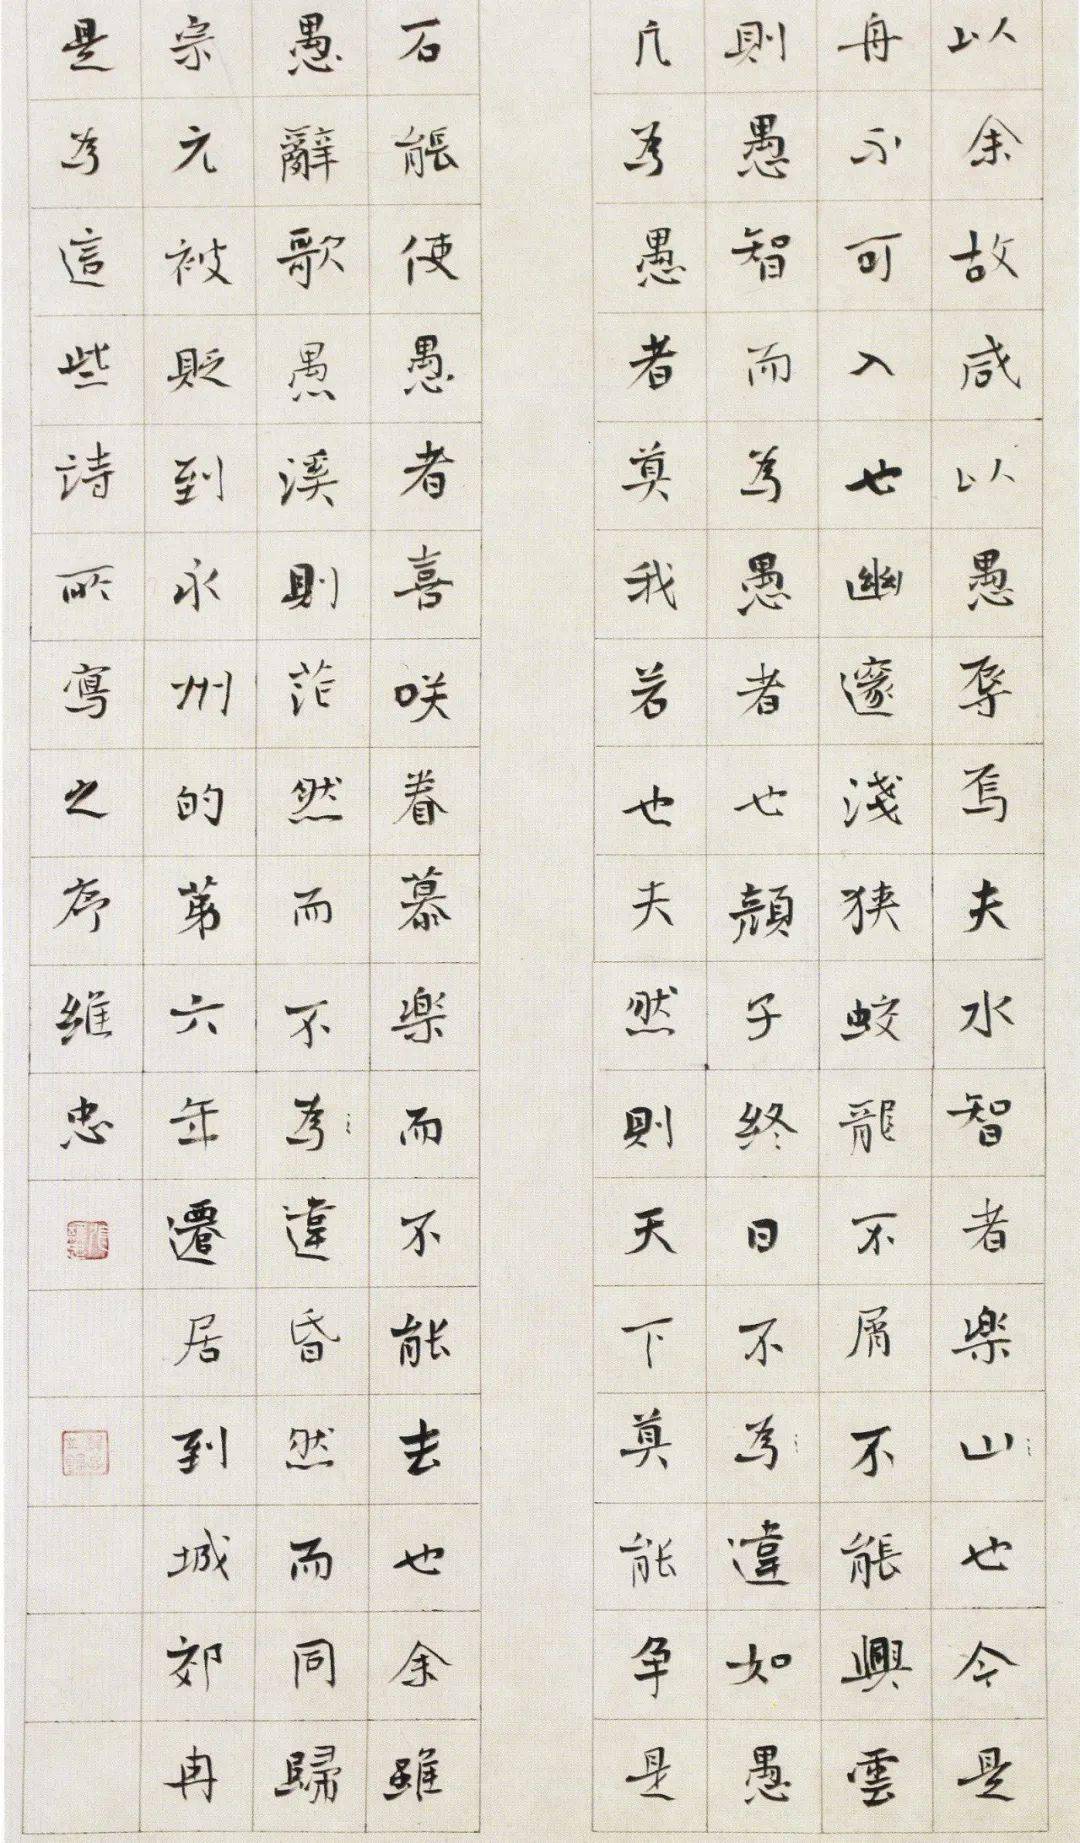 以余故咸以愚辱焉夫水智者樂山也今是
舟不可入也幽邃淺狹蛟龍不屑不能興雲
則愚智而為愚者也顏子終日不為違如愚
凡為愚者莫我若也夫然則天下莫能争是
石能使愚者喜咲眷慕樂而不能去也余雖
愚辭歌愚溪則茫然而不為違昏然而同歸
宗元被貶到永州的第六年遷居到城郊冉
是為這些詩所寫之序維忠